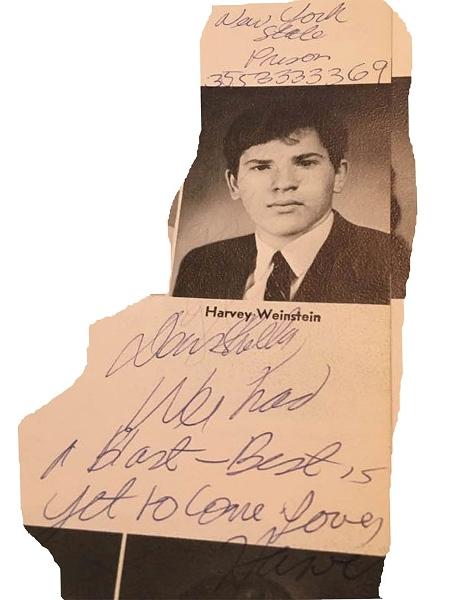 New York
State
Prison
3553333369
Harvey Weinstein
We had
a blast - Best is
yet to come Love